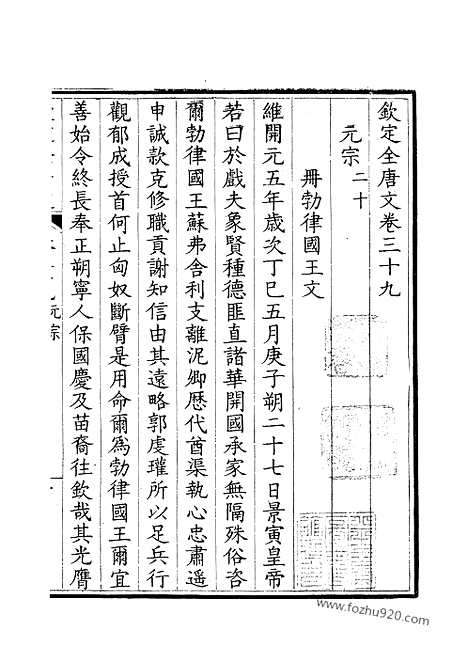 欽定全唐文卷三十九
元宗二十
冊勃律國王文
維開元五年歲次丁巳五月庚子朔二十七日景寅皇帝
若曰於戲夫象賢種德匪直諸華開國承家無隔殊俗咨
爾勃律國王蘇弗舍利支離泥卿歷代酋渠執心忠肅遥
申誠款克修職貢謝知信由其遠略郭虔瓘所以足兵行
觀郁成授首何止匈奴斷臂是用命爾為勃律國王爾宜
善始令終長奉正朔寧人保國慶及苗裔往欽哉其光膺
元宗
www.fozhu920.com